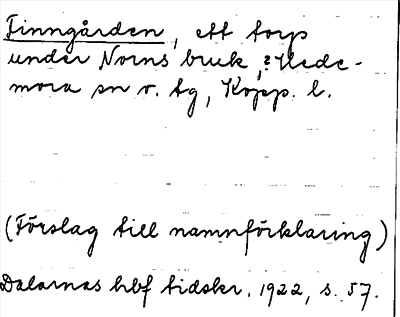 Finngården, ett torp
under Norns bruk, ? Hede-
mora sn o. tg, Kopp. l.
(Förslag till namnförklaring)
Dalarnas hbf tidskr. 1922, s. 57.